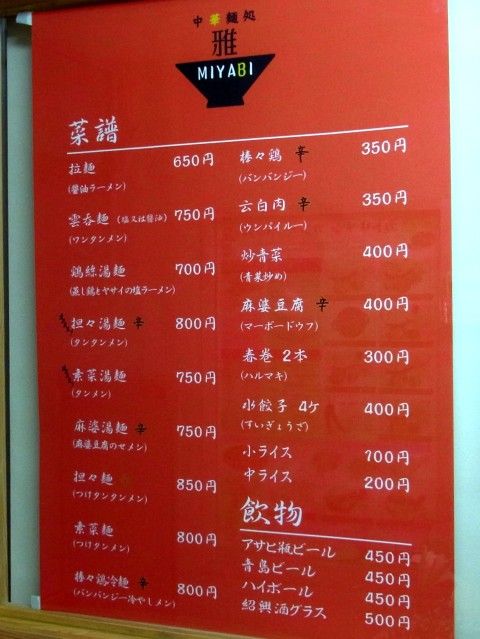 中華麺処
雅
MIYABI
菜譜
拉麺 650円
(醤油ラーメン)
雲呑麺 (塩又は醤油) 750円
(ワンタンメン)
鶏絲湯麺 700円
(蒸し鶏とヤサイの塩ラーメン)
担々湯麺 辛 800円
(タンタンメン)
素菜湯麺 750円
(タンメン)
麻婆湯麺 辛 750円
(麻婆豆腐のせメン)
担々麺 850円
(つけタンタンメン)
素菜麺 800円
(つけタンメン)
棒々鶏冷麺 辛 800円
(バンバンジー冷やしメン)
棒々鶏 辛 350円
(バンバンジー)
云白肉 辛 350円
(ウンパイルー)
炒青菜 400円
(青菜炒め)
麻婆豆腐 辛 400円
(マーボードウフ)
春巻 2本 300円
(ハルマキ)
水餃子 4ケ 400円
(すいぎょうざ)
小ライス 100円
中ライス 200円
飲物
アサヒ瓶ビール 450円
青島ビール 450円
ハイボール 450円
紹興酒グラス 500円